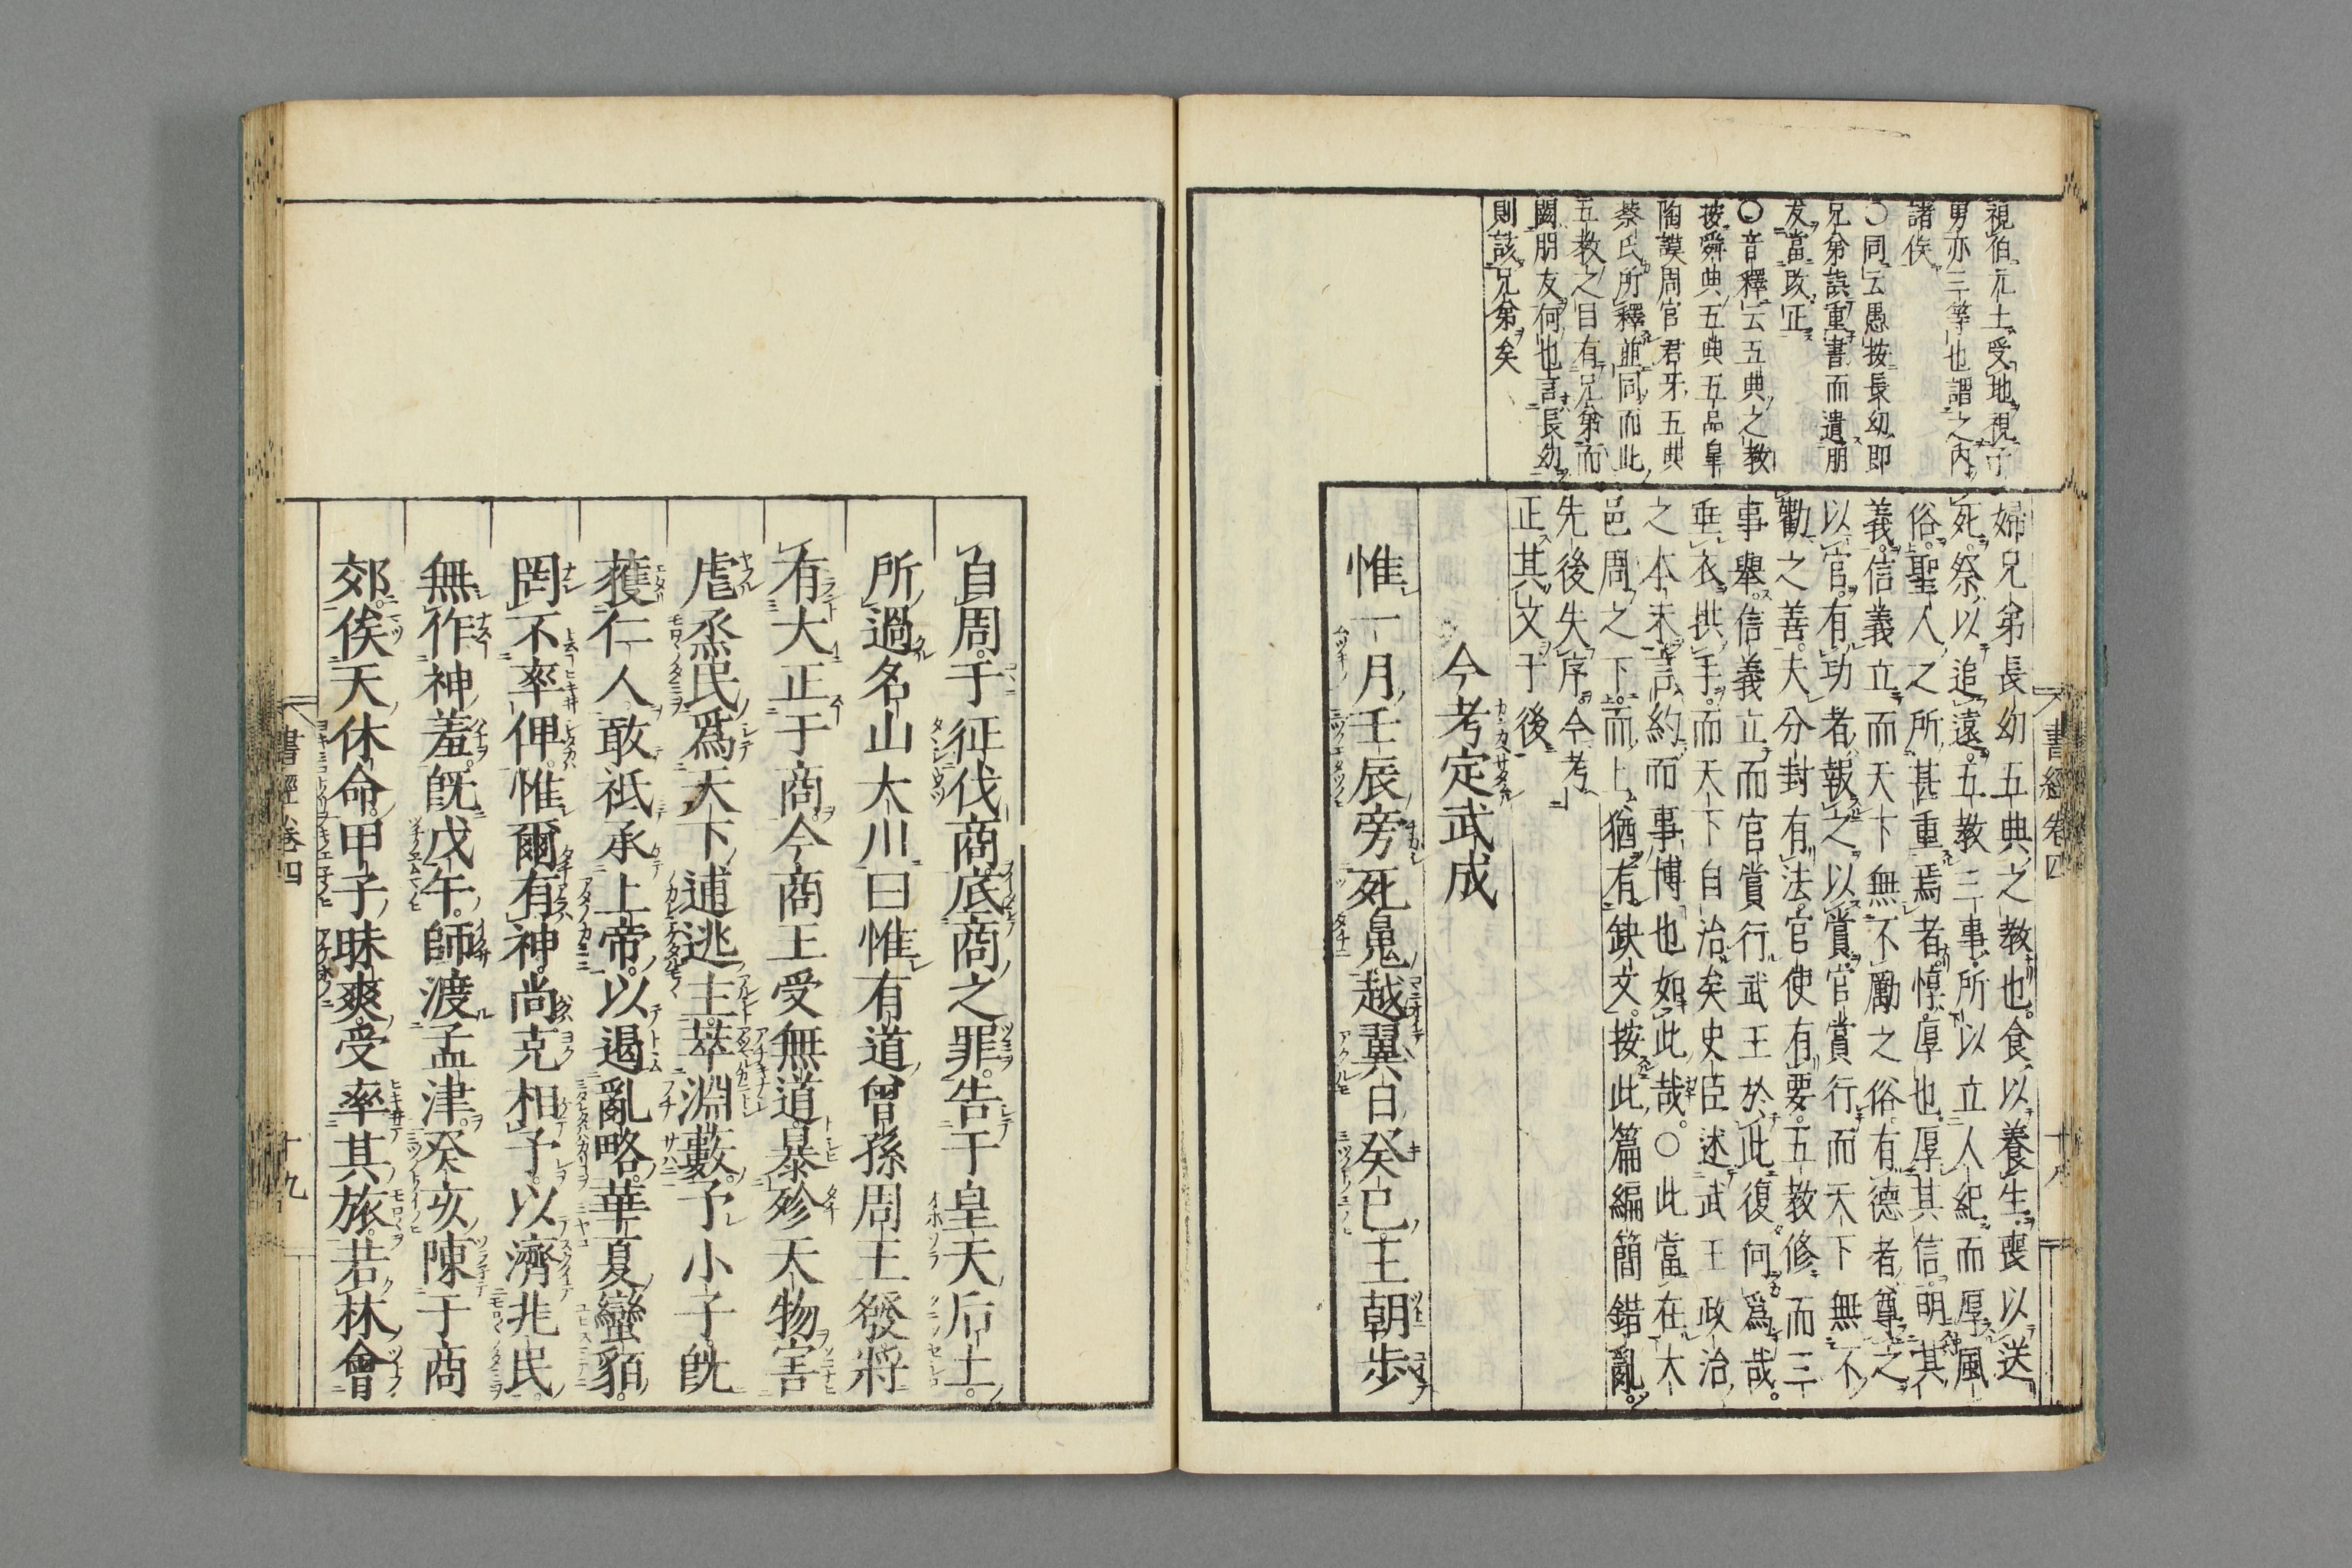 視伯元士受地視子
男亦三等也謂之內
諸侯
○同云愚按長幼即
兄弟誤重書而遺朋
友當改正
○音釋云五典之教
按舜典五典五品皐
陶謨周官君牙五典
蔡氏所釋並同而此
五教之目有兄弟而
闕朋友何也言長幼
則該兄弟矣
婦兄弟長幼五典之教也食以養生喪以送
死祭以追遠五教三事所以立人紀而厚風
俗聖人之所甚重焉者惇厚也厚其信明其
義信義立而天下無不勵之俗有德者尊之
以官有功者報之以賞官賞行而天下無不
勸之善夫分封有法官使有要五教修而三
事舉信義立而官賞行武王於此復何爲哉
垂衣拱手而天下自治矣史臣述武王政治
之本末言約而事博也如此哉○此當在大
邑周之下而上猶有缺文按此篇編簡錯亂
先後失序今考
正其文于後
今考定武成
惟一月壬辰旁死魄越翼日癸巳王朝步
書經卷四
十八
自周于征伐商底商之罪告于皇天后土
所過名山大川曰惟有道曾孫周王發將
有大正于商今商王受無道暴殄天物害
虐烝民爲天下逋逃主萃淵藪予小子旣
獲仁人敢祗承上帝以遏亂略華夏蠻貊
罔不率俾惟爾有神尚克相予以濟兆民
無作神羞旣戊午師渡孟津癸亥陳于商
郊俟天休命甲子昧爽受率其旅若林會
書經卷四
十九